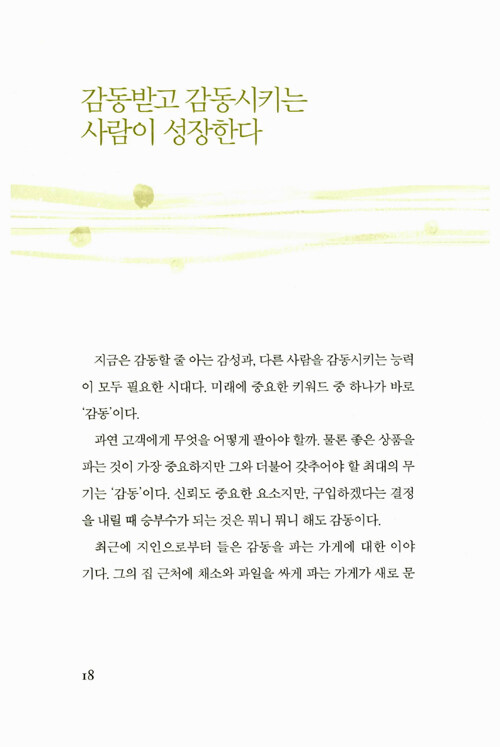 감동받고 감동시키는
사람이 성장한다
지금은 감동할 줄 아는 감성과, 다른 사람을 감동시키는 능력
이 모두 필요한 시대다. 미래에 중요한 키워드 중 하나가 바로
‘감동’이다.
과연 고객에게 무엇을 어떻게 팔아야 할까. 물론 좋은 상품을
파는 것이 가장 중요하지만 그와 더불어 갖추어야 할 최대의 무
기는 ‘감동’이다. 신뢰도 중요한 요소지만, 구입하겠다는 결정
을 내릴 때 승부수가 되는 것은 뭐니 뭐니 해도 감동이다.
최근에 지인으로부터 들은 감동을 파는 가게에 대한 이야
기다. 그의 집 근처에 채소와 과일을 싸게 파는 가게가 새로 문
18